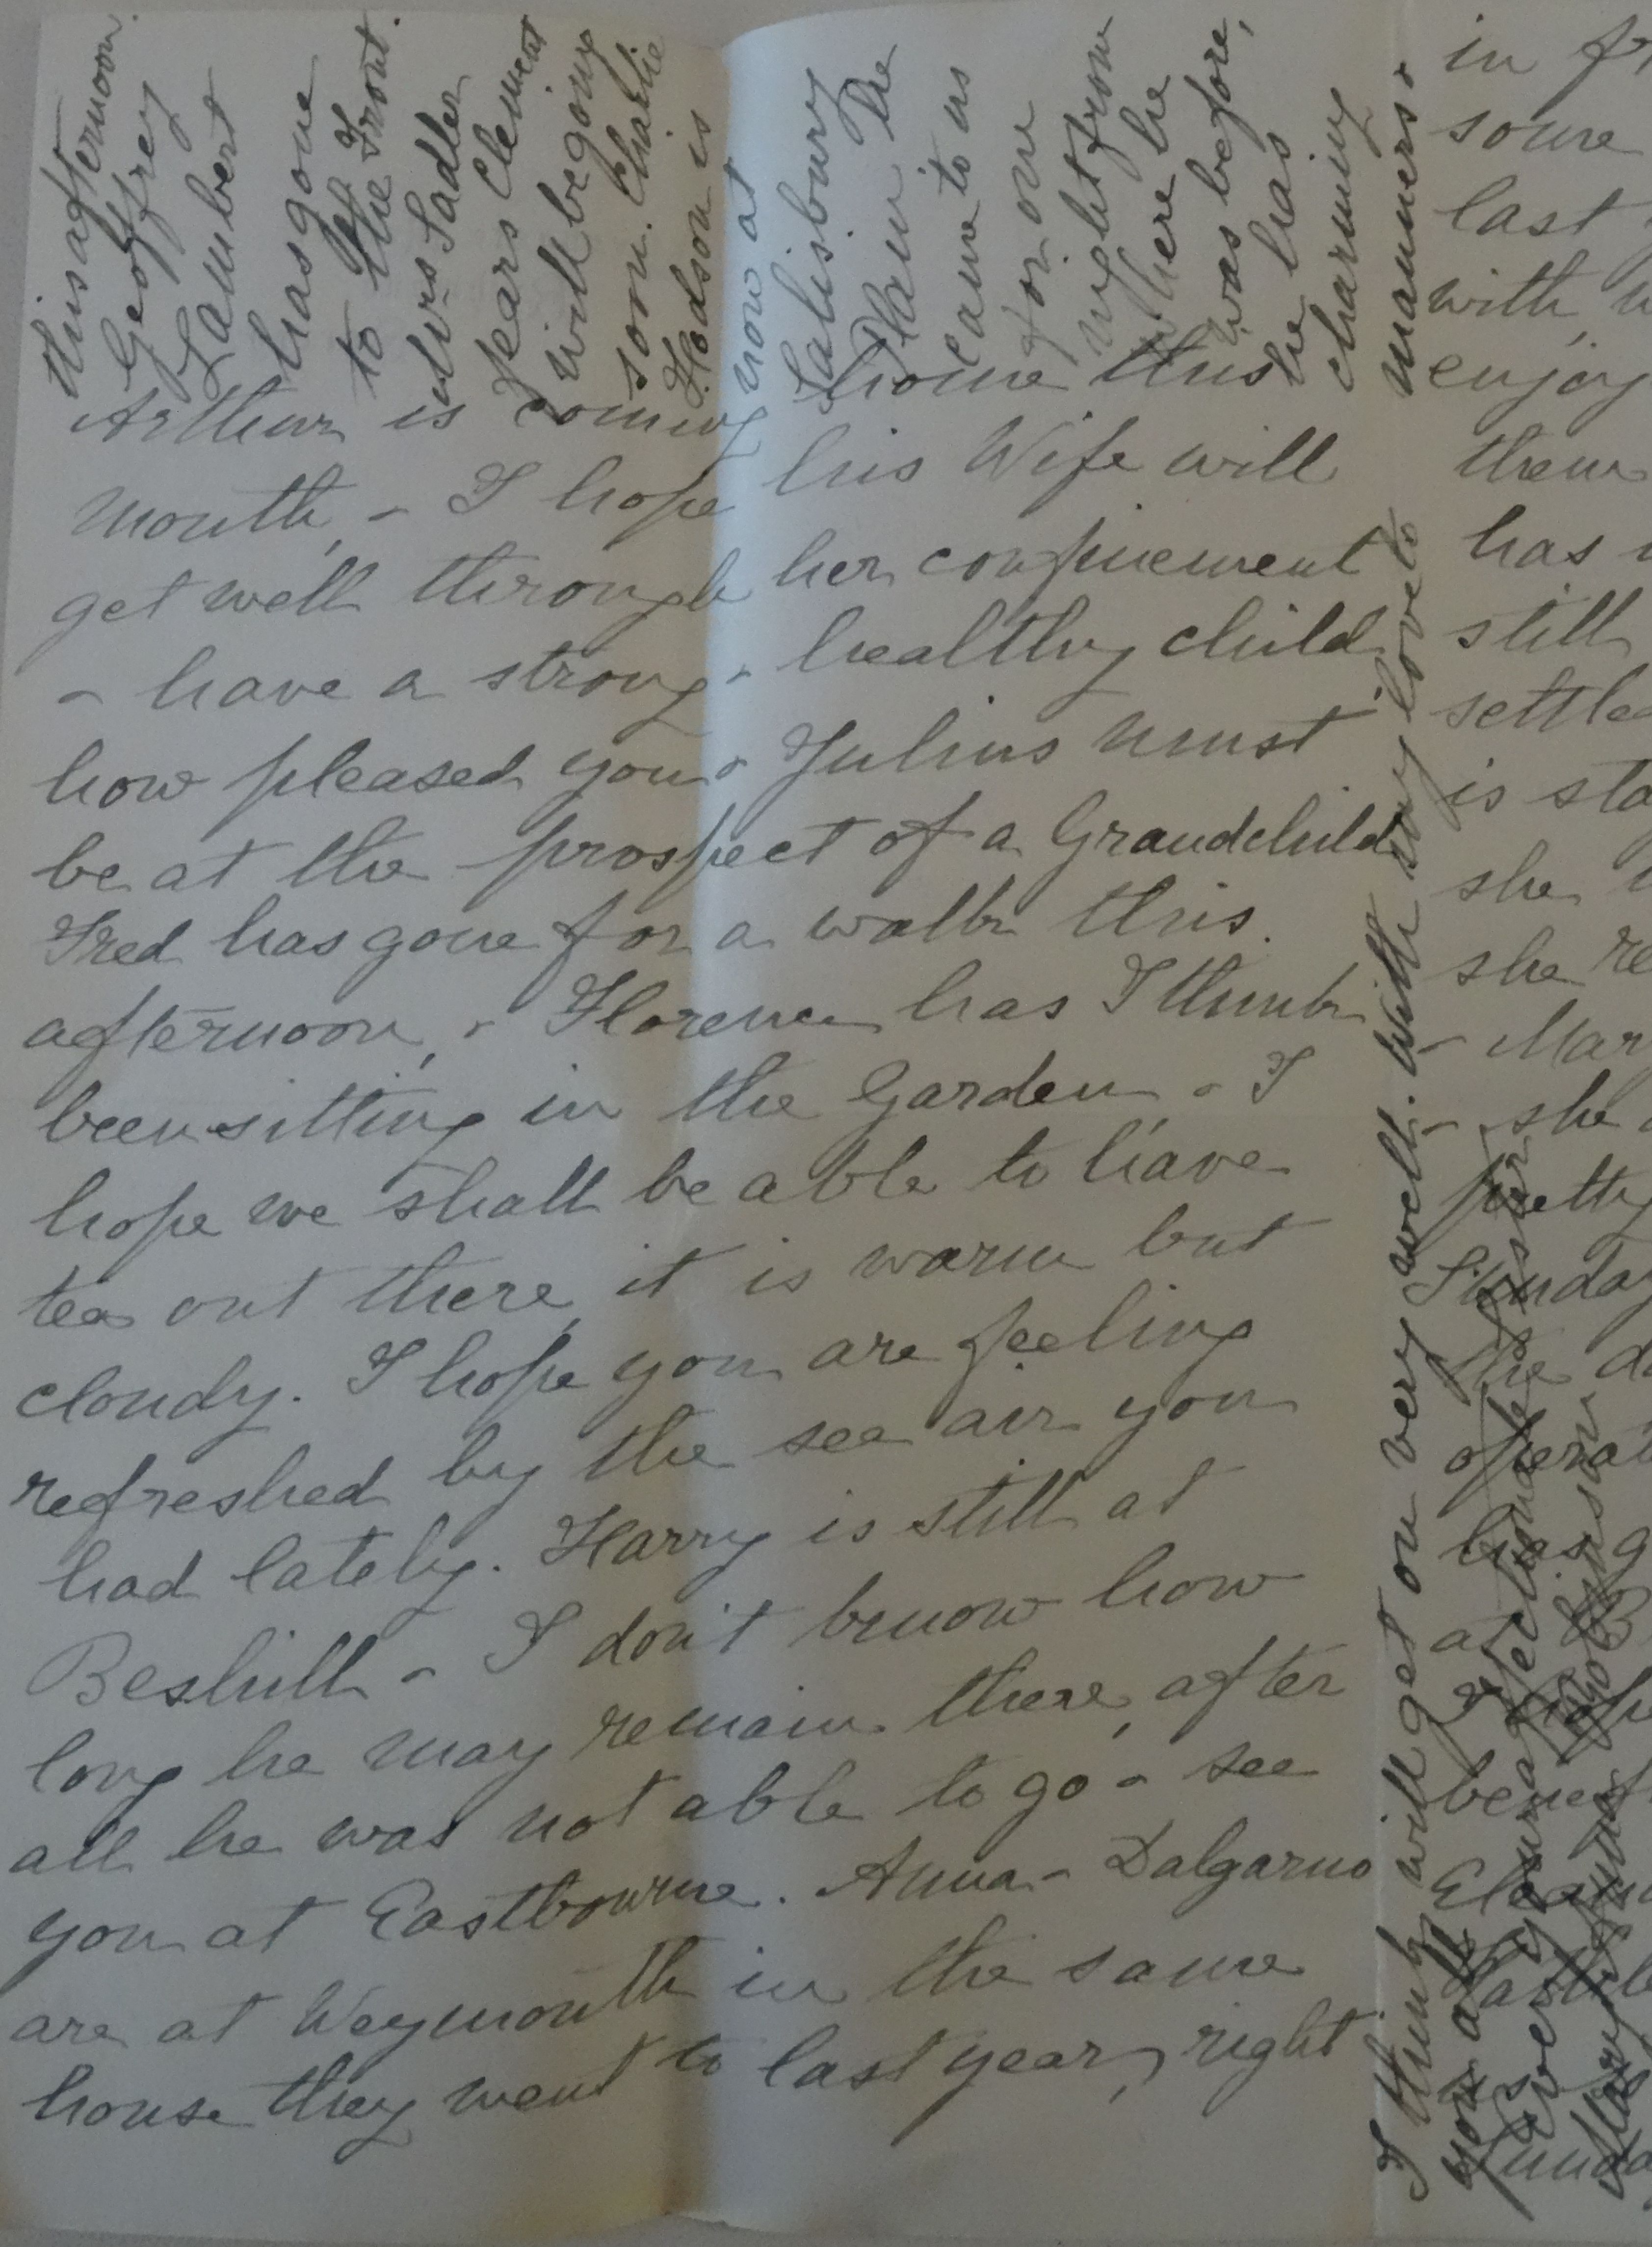 Arthur is coming home this
month, - I hope his Wife will
get well through her confinement
- have a strong - healthy child
how pleased you - Julius must
be at the prospect of a Grandchild
Fred has gone for a walk this
afternoon, - Florence has I think
been sitting in the Garden - I
hope we shall be able to have
tea out there, it is warm but
cloudy. I hope you are feeling
refreshed by the sea air you
had lately. Harry is still at
Bexhill - I don't know how
long he may remain there, after
all he was not able to go - see
you at Eastbourne. Anna - Dalgarno
are at Weymouth in the same
house they went to last year, right
this afternoon.
Geoffrey
Lambert
has gone
to the Front.
Mrs Sadler
fears Clement
will be going
soon. Charlie
Hodson is
now at
Salisbury
Plain he
came to us
for one
night from
where he
was before,
he has
charming
manners -
I think will get on very well. With my love to
you all
Ever your affectionate Sister
Mary Anna Robinson
in
some
last
with
enjoy
them
has
still
settled
is
she
she
- Mar
- she
pretty
Sunday
the
has
at
I hope